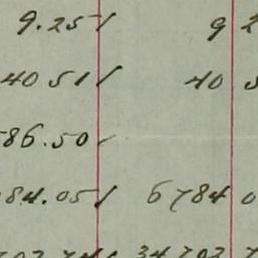 9.25 9 2
40 51 40 5
86.50
84.05 6784 0